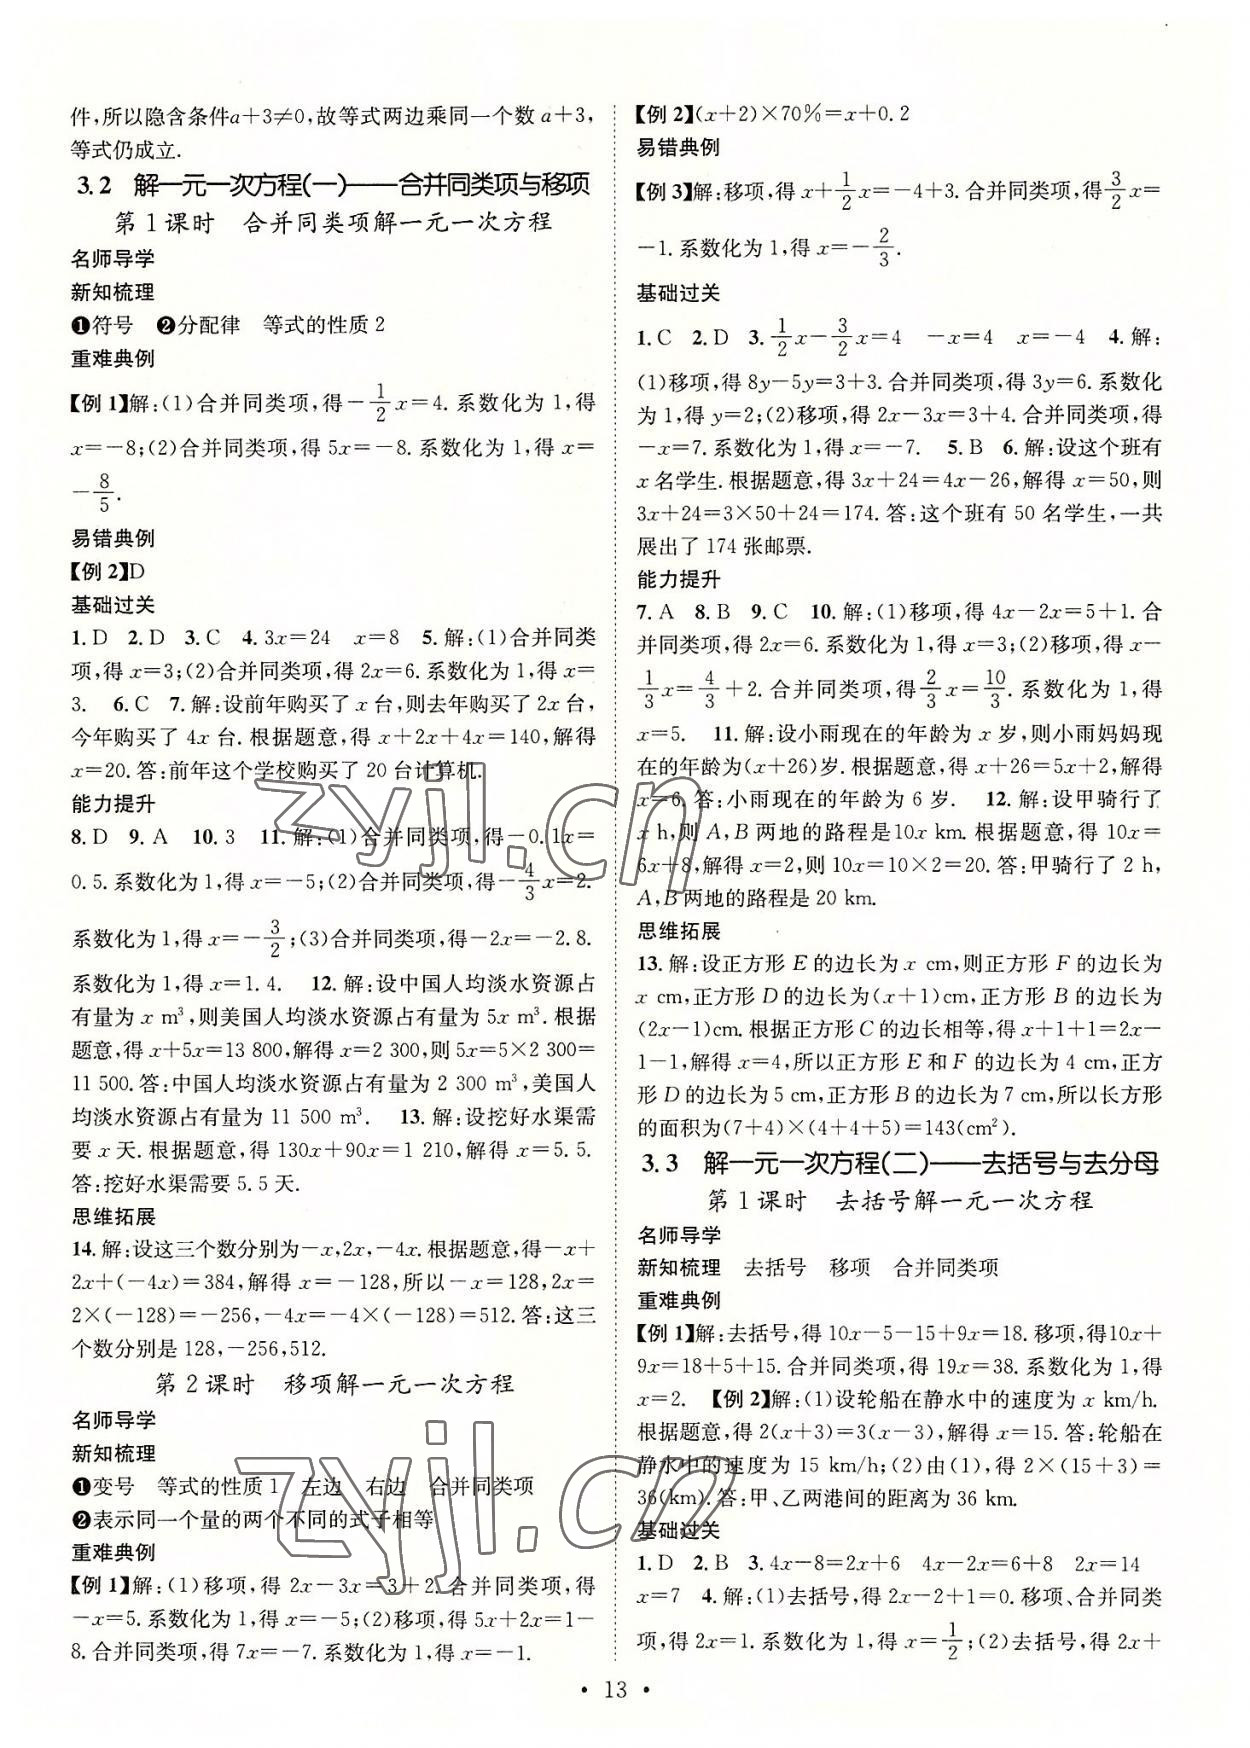 件,所以隐含条件a+3≠0,故等式两边乘同一个数 a+3,
等式仍成立.
3.2 解一元一次方程(一)——合并同类项与移项
第 1 课时 合并同类项解一元一次方程
名师导学
新知梳理
❶符号 ❷分配律 等式的性质 2
重难典例
【例 1】解:(1)合并同类项,得-1/2x=4.系数化为 1,得
x=-8;(2)合并同类项,得 5x=-8.系数化为 1,得 x=
-8/5.
易错典例
【例 2】D
基础过关
1.D 2.D 3.C 4.3x=24 x=8 5.解:(1)合并同类
项,得 x=3;(2)合并同类项,得 2x=6.系数化为 1,得 x=
3. 6.C 7.解:设前年购买了 x 台,则去年购买了 2x 台,
今年购买了 4x 台.根据题意,得 x+2x+4x=140,解得
x=20.答:前年这个学校购买了 20 台计算机.
能力提升
8.D 9.A 10.3 11.解:(1)合并同类项,得-0.1x=
0.5.系数化为 1,得 x=-5;(2)合并同类项,得-4/3x=2.
系数化为 1,得 x=-3/2;(3)合并同类项,得-2x=-2.8.
系数化为 1,得 x=1.4. 12.解:设中国人均淡水资源占
有量为 x m³,则美国人均淡水资源占有量为 5x m³.根据
题意,得 x+5x=13 800,解得 x=2 300,则 5x=5×2 300=
11 500.答:中国人均淡水资源占有量为 2 300 m³,美国人
均淡水资源占有量为 11 500 m³. 13.解:设挖好水渠需
要 x 天.根据题意,得 130x+90x=1 210,解得 x=5.5.
答:挖好水渠需要 5.5 天.
思维拓展
14.解:设这三个数分别为-x,2x,-4x.根据题意,得-x+
2x+(-4x)=384,解得 x=-128,所以-x=128,2x=
2×(-128)=-256,-4x=-4×(-128)=512.答:这三
个数分别是 128,-256,512.
第 2 课时 移项解一元一次方程
名师导学
新知梳理
❶变号 等式的性质 1 左边 右边 合并同类项
❷表示同一个量的两个不同的式子相等
重难典例
【例 1】解:(1)移项,得 2x-3x=3+2.合并同类项,得
-x=5.系数化为 1,得 x=-5;(2)移项,得 5x+2x=1-
8.合并同类项,得 7x=-7.系数化为 1,得 x=-1.
【例 2】(x+2)×70%=x+0.2
易错典例
【例 3】解:移项,得 x+1/2x=-4+3.合并同类项,得3/2x=
-1.系数化为 1,得 x=-2/3.
基础过关
1.C 2.D 3.1/2x-3/2x=4 -x=4 x=-4 4.解:
(1)移项,得 8y-5y=3+3.合并同类项,得 3y=6.系数化
为 1,得 y=2;(2)移项,得 2x-3x=3+4.合并同类项,得
-x=7.系数化为 1,得 x=-7. 5.B 6.解:设这个班有
x 名学生.根据题意,得 3x+24=4x-26,解得 x=50,则
3x+24=3×50+24=174.答:这个班有 50 名学生,一共
展出了 174 张邮票.
能力提升
7.A 8.B 9.C 10.解:(1)移项,得 4x-2x=5+1.合
并同类项,得 2x=6.系数化为 1,得 x=3;(2)移项,得 x-
1/3x=4/3+2.合并同类项,得2/3x=10/3.系数化为 1,得
x=5. 11.解:设小雨现在的年龄为 x 岁,则小雨妈妈现
在的年龄为(x+26)岁.根据题意,得 x+26=5x+2,解得
x=6.答:小雨现在的年龄为 6 岁. 12.解:设甲骑行了
x h,则 A,B 两地的路程是10x km.根据题意,得 10x=
6x+8,解得 x=2,则 10x=10×2=20.答:甲骑行了 2 h,
A,B两地的路程是 20 km.
思维拓展
13.解:设正方形 E 的边长为 x cm,则正方形 F 的边长为
x cm,正方形 D 的边长为(x+1)cm,正方形 B 的边长为
(2x-1)cm.根据正方形 C 的边长相等,得 x+1+1=2x-
1-1,解得 x=4,所以正方形 E 和 F 的边长为 4 cm,正方
形 D 的边长为 5 cm,正方形 B 的边长为 7 cm,所以长方形
的面积为(7+4)×(4+4+5)=143(cm²).
3.3 解一元一次方程(二)——去括号与去分母
第 1 课时 去括号解一元一次方程
名师导学
新知梳理 去括号 移项 合并同类项
重难典例
【例 1】解:去括号,得 10x-5-15+9x=18.移项,得10x+
9x=18+5+15.合并同类项,得 19x=38.系数化为 1,得
x=2. 【例 2】解:(1)设轮船在静水中的速度为 x km/h.
根据题意,得 2(x+3)=3(x-3),解得 x=15.答:轮船在
静水中的速度为 15 km/h;(2)由(1),得 2×(15+3)=
36(km).答:甲、乙两港间的距离为 36 km.
基础过关
1.D 2.B 3.4x-8=2x+6 4x-2x=6+8 2x=14
x=7 4.解:(1)去括号,得 2x-2+1=0.移项、合并同类
项,得 2x=1.系数化为 1,得 x=1/2;(2)去括号,得 2x+
• 13 •
zyjl.cn
zyjl.cn